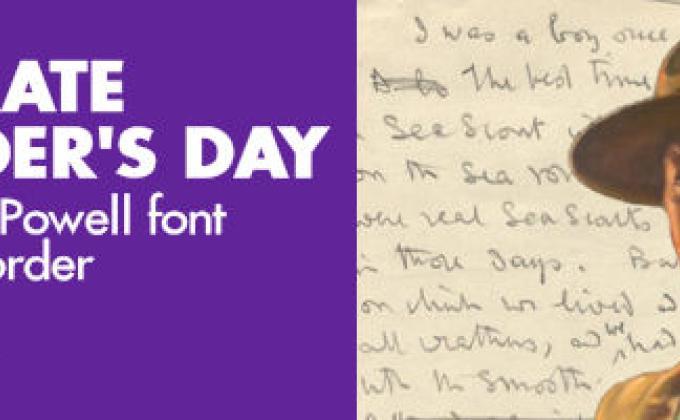 RATE
DER'S DAY
Powell font
order
I was a boy once
The best time
Sea Scout
on the sea
were real Sea Scouts
in those days. Ba
on which we lived a
all weathers, and we had
with the smooth.